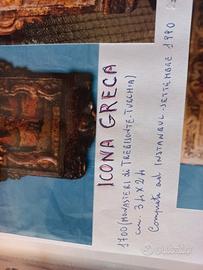 ICONA GRECA
1700 (MONASTERI di TREBISONTE-TURCHIA)
cm. 34x24
Comprata ad INSTANBUL-SETTEMBRE 1990